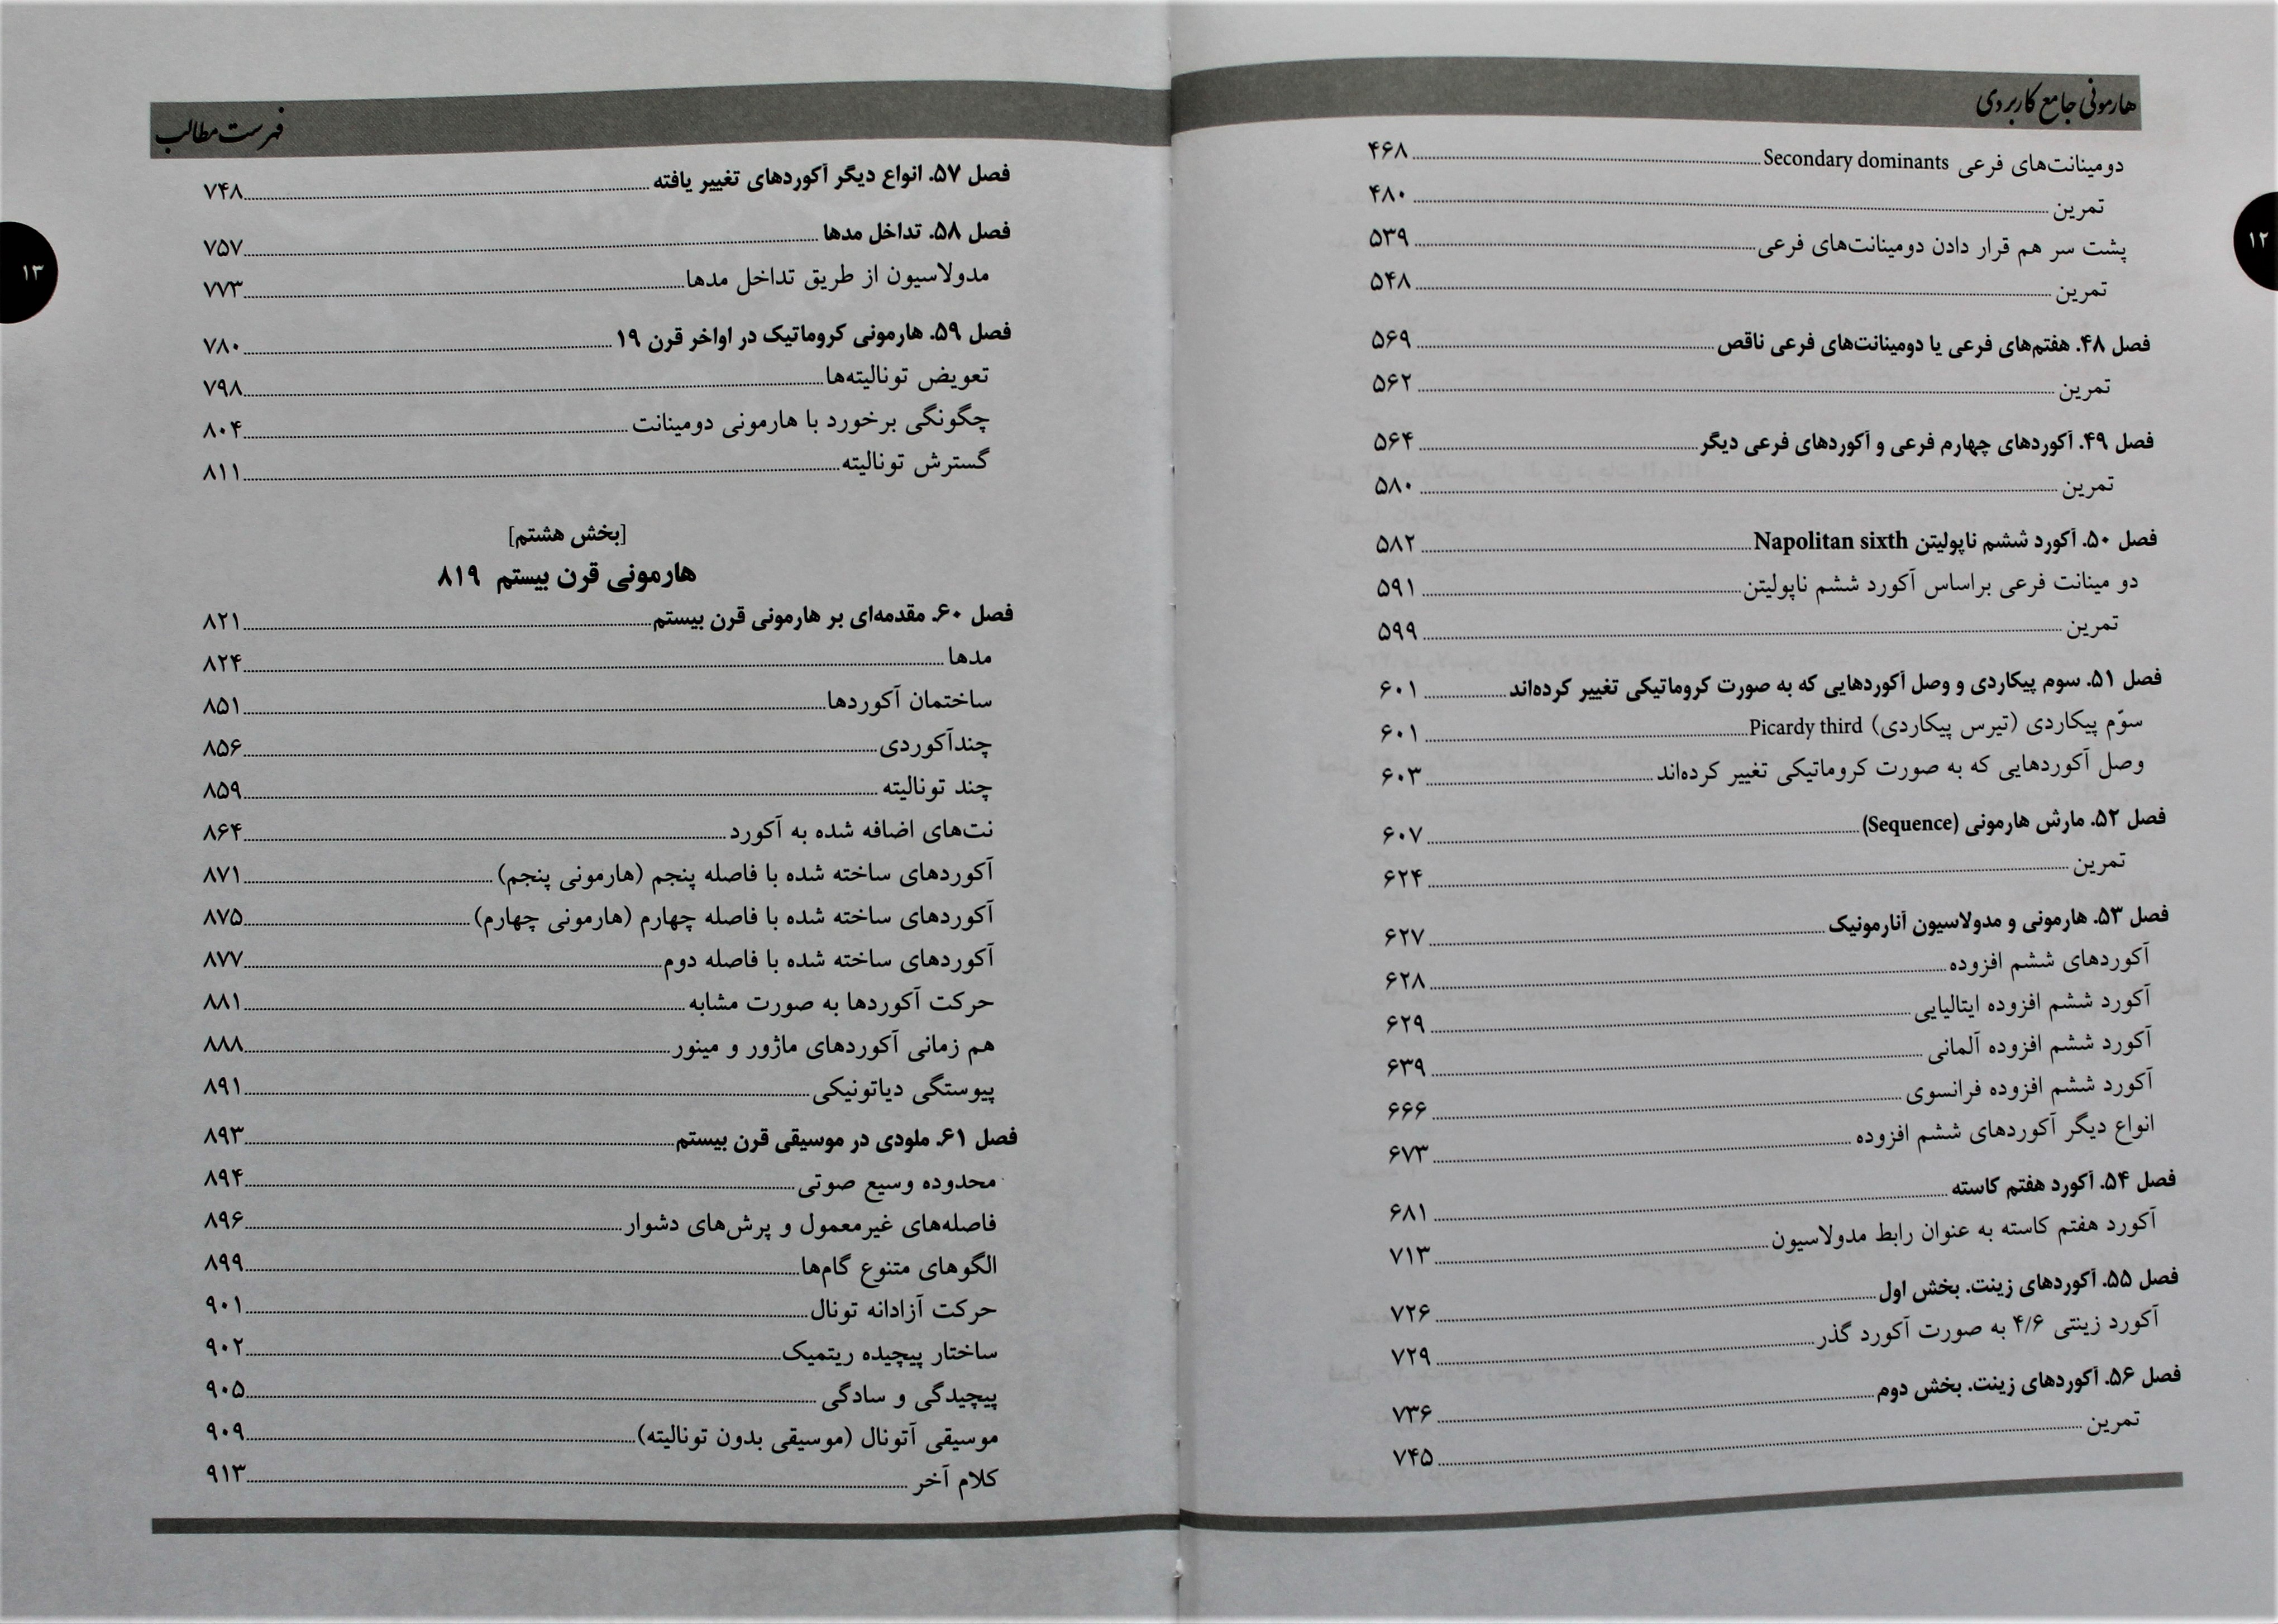 هارمونی جامع کاربردی
۱۲
دومینانت‌های فرعی Secondary dominants ۴۶۸
تمرین ۴۸۰
پشت سر هم قرار دادن دومینانت‌های فرعی ۵۳۹
تمرین ۵۴۸
فصل ۴۸. هفتم‌های فرعی یا دومینانت‌های فرعی ناقص ۵۶۹
تمرین ۵۶۲
فصل ۴۹. آکوردهای چهارم فرعی و آکوردهای فرعی دیگر ۵۶۴
تمرین ۵۸۰
فصل ۵۰. آکورد ششم ناپولیتن Napolitan sixth ۵۸۲
دو مینانت فرعی براساس آکورد ششم ناپولیتن ۵۹۱
تمرین ۵۹۹
فصل ۵۱. سوم پیکاردی و وصل آکوردهایی که به صورت کروماتیکی تغییر کرده‌اند ۶۰۱
سوّم پیکاردی (تیرس پیکاردی) Picardy third ۶۰۱
وصل آکوردهایی که به صورت کروماتیکی تغییر کرده‌اند ۶۰۳
فصل ۵۲. مارش هارمونی (Sequence) ۶۰۷
تمرین ۶۲۴
فصل ۵۳. هارمونی و مدولاسیون آنارمونیک ۶۲۷
آکوردهای ششم افزوده ۶۲۸
آکورد ششم افزوده ایتالیایی ۶۲۹
آکورد ششم افزوده آلمانی ۶۳۹
آکورد ششم افزوده فرانسوی ۶۶۶
انواع دیگر آکوردهای ششم افزوده ۶۷۳
فصل ۵۴. آکورد هفتم کاسته ۶۸۱
آکورد هفتم کاسته به عنوان رابط مدولاسیون ۷۱۳
فصل ۵۵. آکوردهای زینت. بخش اول ۷۲۶
آکورد زینتی ۴/۶ به صورت آکورد گذر ۷۲۹
فصل ۵۶. آکوردهای زینت. بخش دوم ۷۳۶
تمرین ۷۴۵
فهرست مطالب
۱۳
فصل ۵۷. انواع دیگر آکوردهای تغییر یافته ۷۴۸
فصل ۵۸. تداخل مدها ۷۵۷
مدولاسیون از طریق تداخل مدها ۷۷۳
فصل ۵۹. هارمونی کروماتیک در اواخر قرن ۱۹ ۷۸۰
تعویض تونالیته‌ها ۷۹۸
چگونگی برخورد با هارمونی دومینانت ۸۰۴
گسترش تونالیته ۸۱۱
[بخش هشتم]
هارمونی قرن بیستم ۸۱۹
فصل ۶۰. مقدمه‌ای بر هارمونی قرن بیستم ۸۲۱
مدها ۸۲۴
ساختمان آکوردها ۸۵۱
چندآکوردی ۸۵۶
چند تونالیته ۸۵۹
نت‌های اضافه شده به آکورد ۸۶۴
آکوردهای ساخته شده با فاصله پنجم (هارمونی پنجم) ۸۷۱
آکوردهای ساخته شده با فاصله چهارم (هارمونی چهارم) ۸۷۵
آکوردهای ساخته شده با فاصله دوم ۸۷۷
حرکت آکوردها به صورت مشابه ۸۸۱
هم زمانی آکوردهای ماژور و مینور ۸۸۸
پیوستگی دیاتونیکی ۸۹۱
فصل ۶۱. ملودی در موسیقی قرن بیستم ۸۹۳
محدوده وسیع صوتی ۸۹۴
فاصله‌های غیرمعمول و پرش‌های دشوار ۸۹۶
الگوهای متنوع گام‌ها ۸۹۹
حرکت آزادانه تونال ۹۰۱
ساختار پیچیده ریتمیک ۹۰۲
پیچیدگی و سادگی ۹۰۵
موسیقی آتونال (موسیقی بدون تونالیته) ۹۰۹
کلام آخر ۹۱۳